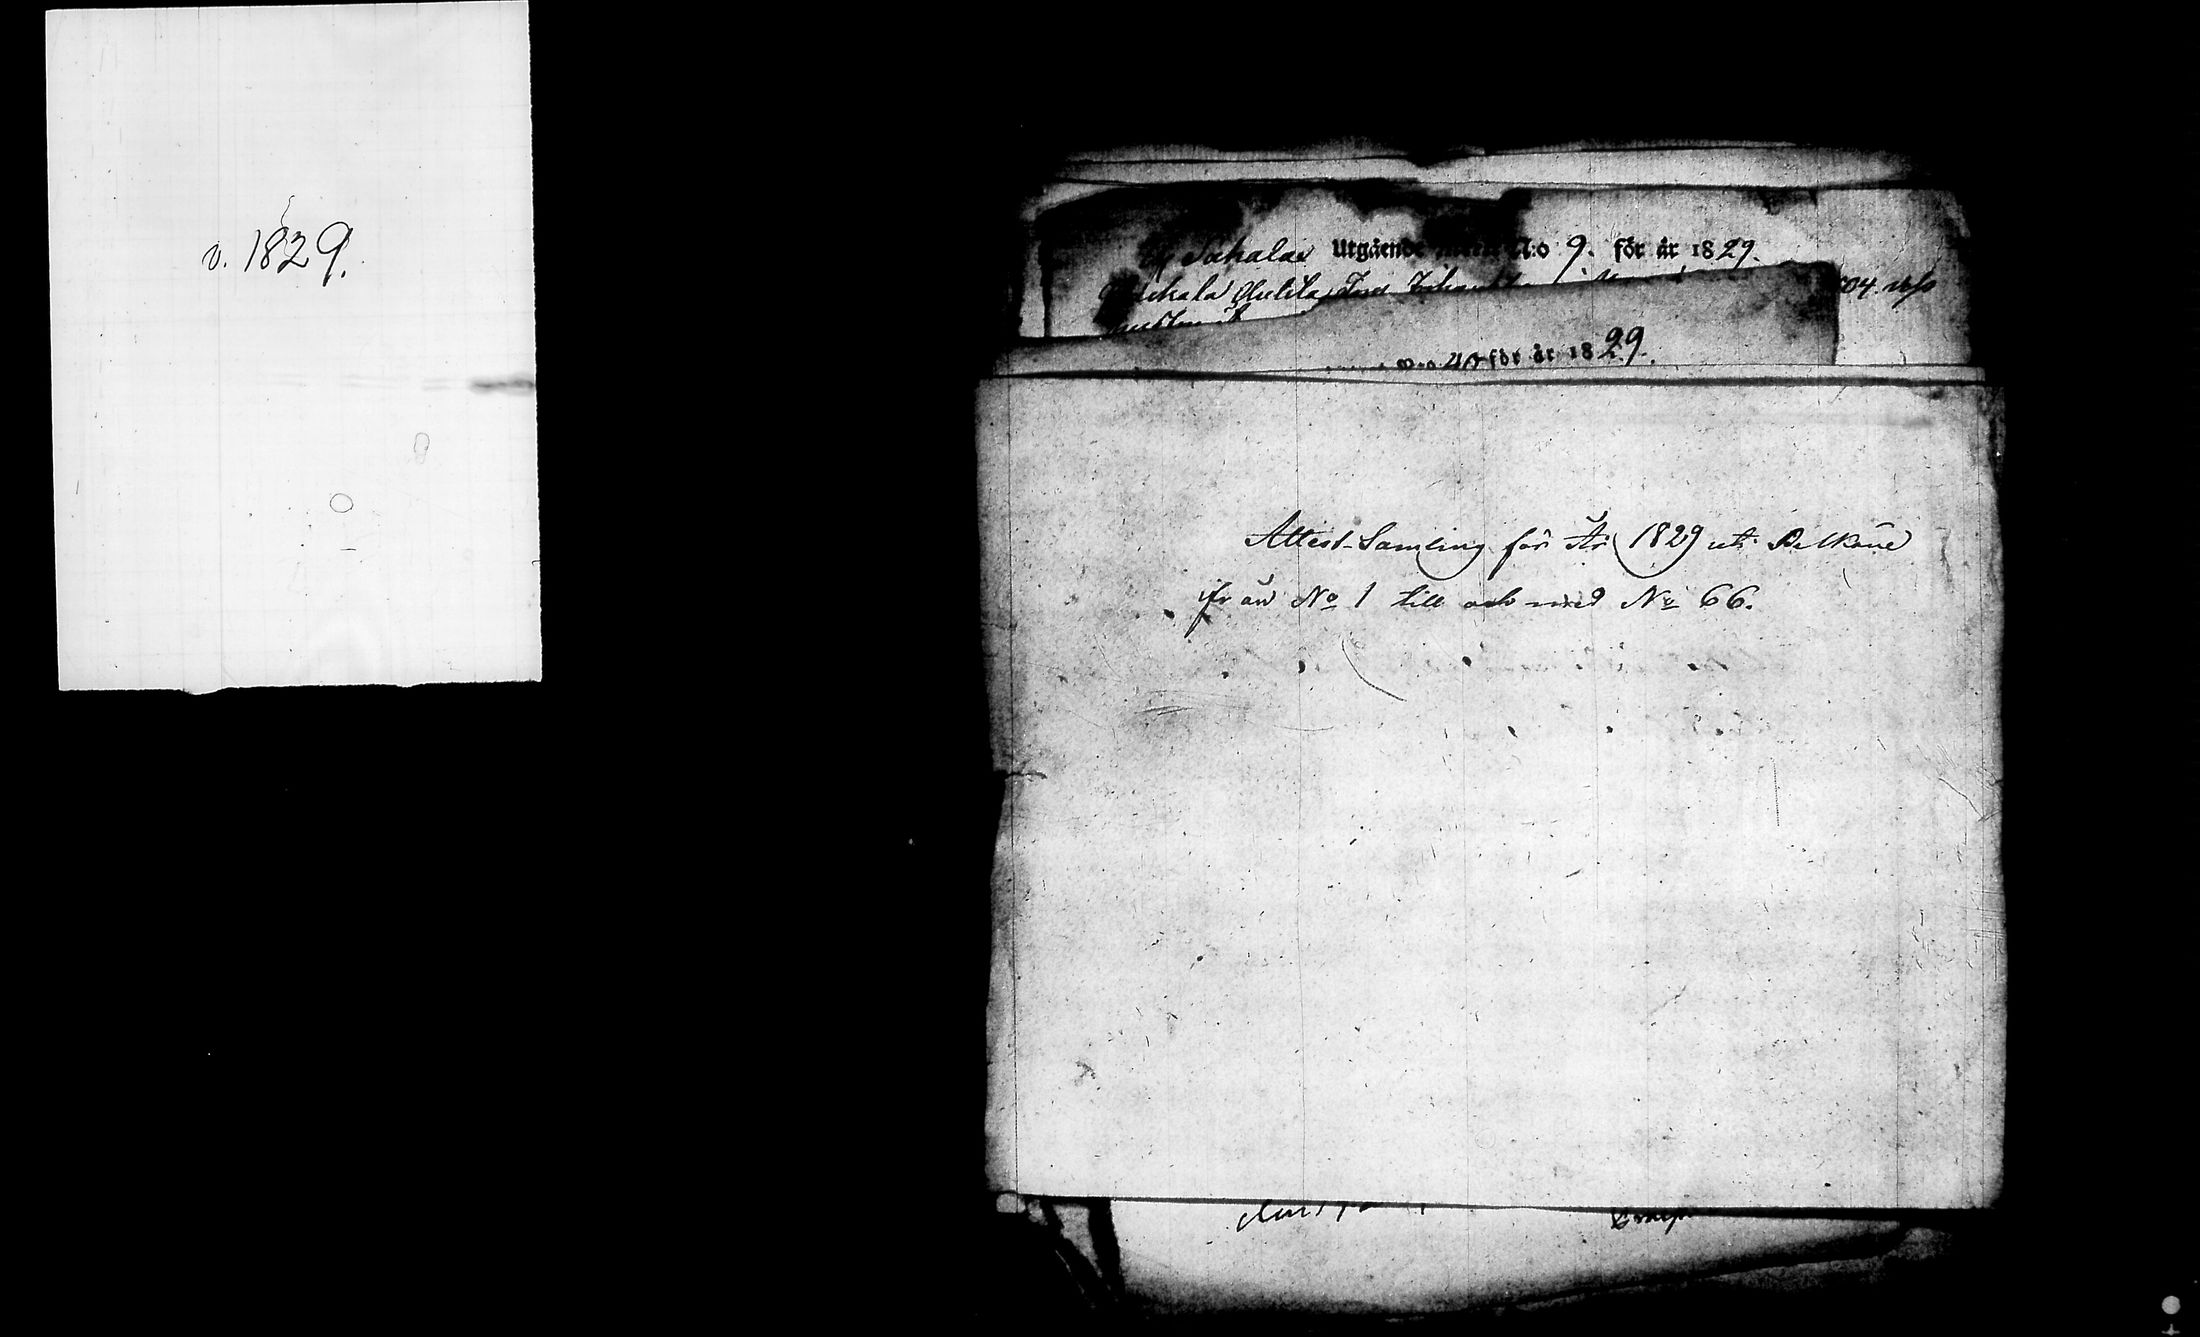 v. 1829.
Sahala Utgående N:o 9. för år 1829.
för år 1829.
Attest-Samling för År 1829 uti Pelkäne
från No 1 till och med No 66.